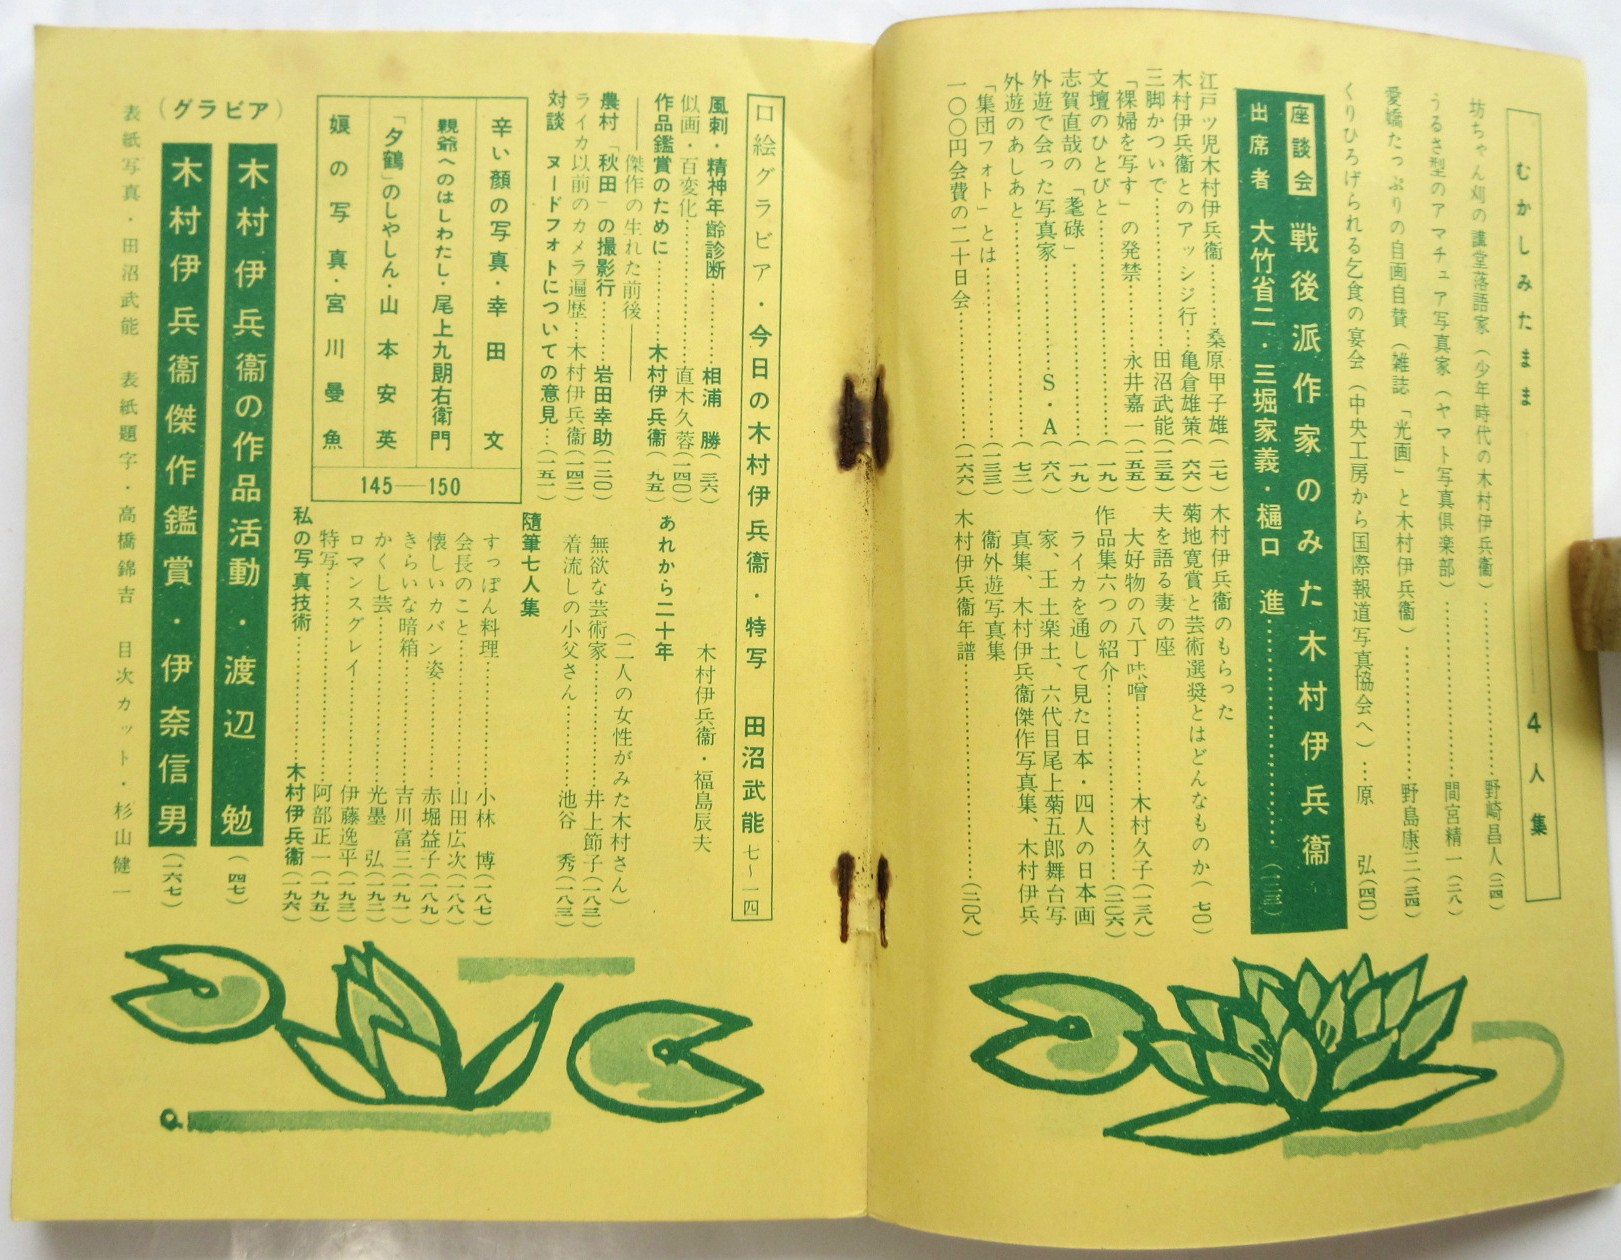 むかしみたまま 4人集
坊ちゃん刈の講堂落語家(少年時代の木村伊兵衞)…野崎昌人(二四)
うるさ型のアマチュア写真家(ヤマト写真倶楽部)…間宮精一(二八)
愛嬌たっぷりの自画自賛(雑誌「光画」と木村伊兵衞)…野島康三(三四)
くりひろげられる乞食の宴会(中央工房から国際報道写真協会へ)…原 弘(四〇)
座談会 戦後派作家のみた木村伊兵衞
出席者 大竹省二・三堀家義・樋口 進…(一二三)
江戸ッ児木村伊兵衞…桑原甲子雄(二七)
木村伊兵衞とのアッシジ行…亀倉雄策(六六)
三脚かついで…田沼武能(一三五)
「裸婦を写す」の発禁…永井嘉一(一五五)
文壇のひとびと…(一九)
志賀直哉の「耄碌」…(一九)
外遊で会った写真家…S・A(六八)
外遊のあしあと…(七二)
「集団フォト」とは…(一三三)
一〇〇円会費の二十日会…(一六六)
木村伊兵衞のもらった
菊地寛賞と芸術選奨とはどんなものか(七〇)
夫を語る妻の座
大好物の八丁味噌…木村久子(一三八)
作品集六つの紹介…(二〇六)
ライカを通して見た日本・四人の日本画
家、王土楽土、六代目尾上菊五郎舞台写
真集、木村伊兵衞傑作写真集、木村伊兵
衞外遊写真集
木村伊兵衞年譜…(二〇八)
口絵グラビア・今日の木村伊兵衞・特写 田沼武能 七~一四
風刺・精神年齢診断…相浦 勝(三六)
似画・百変化…直木久蓉(一四〇)
作品鑑賞のために…木村伊兵衞(九五)
――傑作の生れた前後――
農村「秋田」の撮影行…岩田幸助(一二〇)
ライカ以前のカメラ遍歴…木村伊兵衞(一四二)
対談 ヌードフォトについての意見…(一五一)
木村伊兵衞・福島辰夫
あれから二十年
(二人の女性がみた木村さん)
無欲な芸術家…井上節子(一八三)
着流しの小父さん…池谷 秀(一八三)
辛い顏の写真・幸田 文
親爺へのはしわたし・尾上九朗右衛門
「夕鶴」のしやしん・山本安英
娘の写真・宮川曼魚
145―150
随筆七人集
すっぽん料理…小林 博(一八七)
会長のこと…山田広次(一八八)
懐しいカバン姿…赤堀益子(一八九)
きらいな暗箱…吉川富三(一九一)
かくし芸…光墨 弘(一九二)
ロマンスグレイ…伊藤逸平(一九三)
特写…阿部正一(一九五)
私の写真技術…木村伊兵衞(一九六)
(グラビア)
木村伊兵衞の作品活動・渡辺 勉(四七)
木村伊兵衞傑作鑑賞・伊奈信男(一六七)
表紙写真・田沼武能 表紙題字・高橋錦吉 目次カット・杉山健一